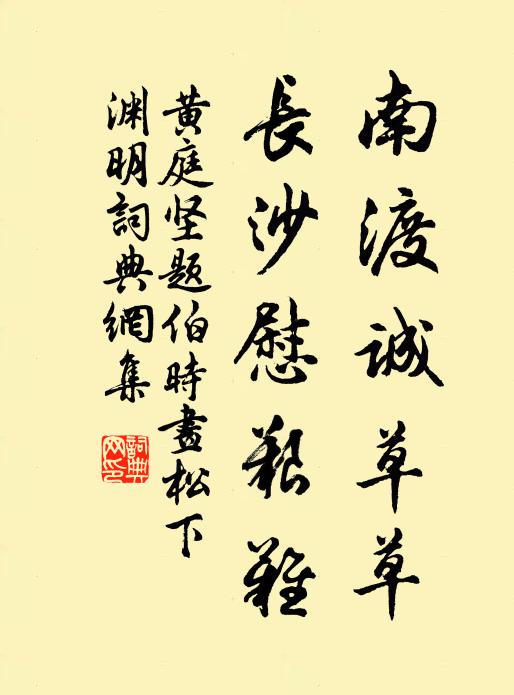 南渡诚草草
長沙慰艱難
黄庭坚题伯時畫松下
渊明詞典網集
詞典网印